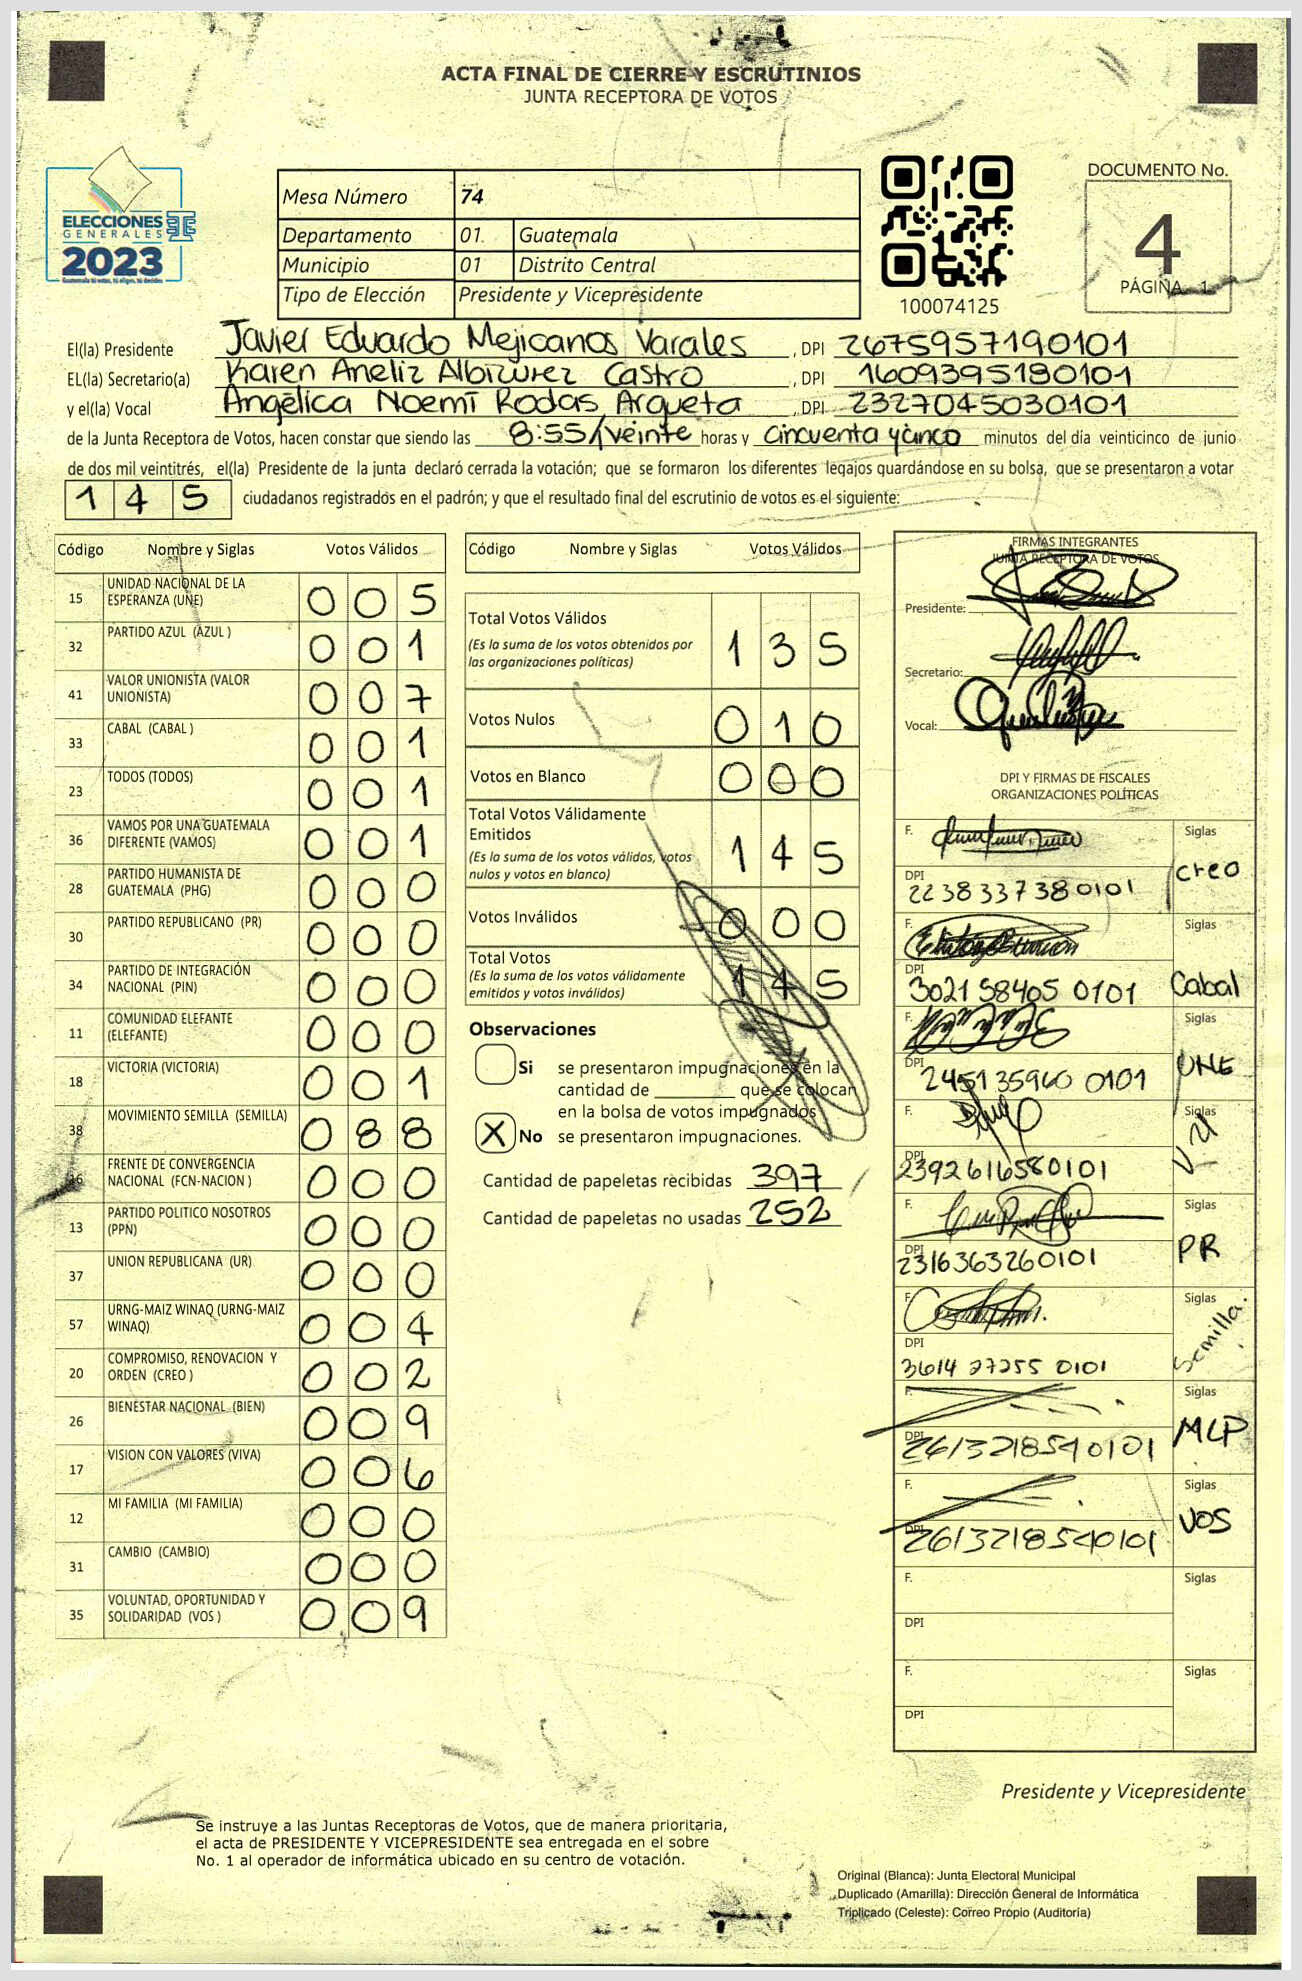 ACTA FINAL DE CIERRE Y ESCRUTINIOS
JUNTA RECEPTORA DE VOTOS
ELECCIONES
GENERALES
2023
Mesa Número 74
Departamento 01 Guatemala
Municipio 01 Distrito Central
Tipo de Elección Presidente y Vicepresidente
100074125
DOCUMENTO No.
4
PÁGINA 1
El(la) Presidente Javier Eduardo Mejicanos Varales , DPI 2675957190101
EL(la) Secretario(a) Karen Aneliz Albizurez Castro , DPI 1609395180101
y el(la) Vocal Angélica Noemí Rodas Argueta , DPI 2327045030101
de la Junta Receptora de Votos, hacen constar que siendo las 8:55/veinte horas y cincuenta y cinco minutos del día veinticinco de junio
de dos mil veintitrés, el(la) Presidente de la junta declaró cerrada la votación; que se formaron los diferentes legajos guardándose en su bolsa, que se presentaron a votar
145 ciudadanos registrados en el padrón; y que el resultado final del escrutinio de votos es el siguiente:
Código Nombre y Siglas Votos Válidos
15 UNIDAD NACIONAL DE LA ESPERANZA (UNE) 005
32 PARTIDO AZUL (AZUL ) 001
41 VALOR UNIONISTA (VALOR UNIONISTA) 007
33 CABAL (CABAL ) 001
23 TODOS (TODOS) 001
36 VAMOS POR UNA GUATEMALA DIFERENTE (VAMOS) 001
28 PARTIDO HUMANISTA DE GUATEMALA (PHG) 000
30 PARTIDO REPUBLICANO (PR) 000
34 PARTIDO DE INTEGRACIÓN NACIONAL (PIN) 000
11 COMUNIDAD ELEFANTE (ELEFANTE) 000
18 VICTORIA (VICTORIA) 001
38 MOVIMIENTO SEMILLA (SEMILLA) 088
16 FRENTE DE CONVERGENCIA NACIONAL (FCN-NACION ) 000
13 PARTIDO POLITICO NOSOTROS (PPN) 000
37 UNION REPUBLICANA (UR) 000
57 URNG-MAIZ WINAQ (URNG-MAIZ WINAQ) 004
20 COMPROMISO, RENOVACION Y ORDEN (CREO ) 002
26 BIENESTAR NACIONAL (BIEN) 009
17 VISION CON VALORES (VIVA) 006
12 MI FAMILIA (MI FAMILIA) 000
31 CAMBIO (CAMBIO) 000
35 VOLUNTAD, OPORTUNIDAD Y SOLIDARIDAD (VOS ) 009
Código Nombre y Siglas Votos Válidos
Total Votos Válidos 135
(Es la suma de los votos obtenidos por
las organizaciones políticas)
Votos Nulos 010
Votos en Blanco 000
Total Votos Válidamente
Emitidos 145
(Es la suma de los votos válidos, votos
nulos y votos en blanco)
Votos Inválidos 000
Total Votos 145
(Es la suma de los votos válidamente
emitidos y votos inválidos)
Observaciones
Si se presentaron impugnaciones en la
cantidad de ________ que se colocan
en la bolsa de votos impugnados
X No se presentaron impugnaciones.
Cantidad de papeletas recibidas 397
Cantidad de papeletas no usadas 252
FIRMAS INTEGRANTES
JUNTA RECEPTORA DE VOTOS
Presidente:
Secretario:
Vocal:
DPI Y FIRMAS DE FISCALES
ORGANIZACIONES POLÍTICAS
F. Siglas
DPI 2238337380101 creo
F. Siglas
DPI 3021 58405 0101 Cabal
F. Siglas
DPI 2451 35960 0101 UNE
F. Siglas
DPI 2392616580101
F. Siglas
DPI 2316363260101 PR
F. Siglas
DPI 3614 27255 0101 Semilla.
F. Siglas
DPI 2613218540101 MLP
F. Siglas
DPI 2613218540101 VOS
F. Siglas
DPI
F. Siglas
DPI
Presidente y Vicepresidente
Se instruye a las Juntas Receptoras de Votos, que de manera prioritaria,
el acta de PRESIDENTE Y VICEPRESIDENTE sea entregada en el sobre
No. 1 al operador de informática ubicado en su centro de votación.
Original (Blanca): Junta Electoral Municipal
Duplicado (Amarilla): Dirección General de Informática
Triplicado (Celeste): Correo Propio (Auditoría)